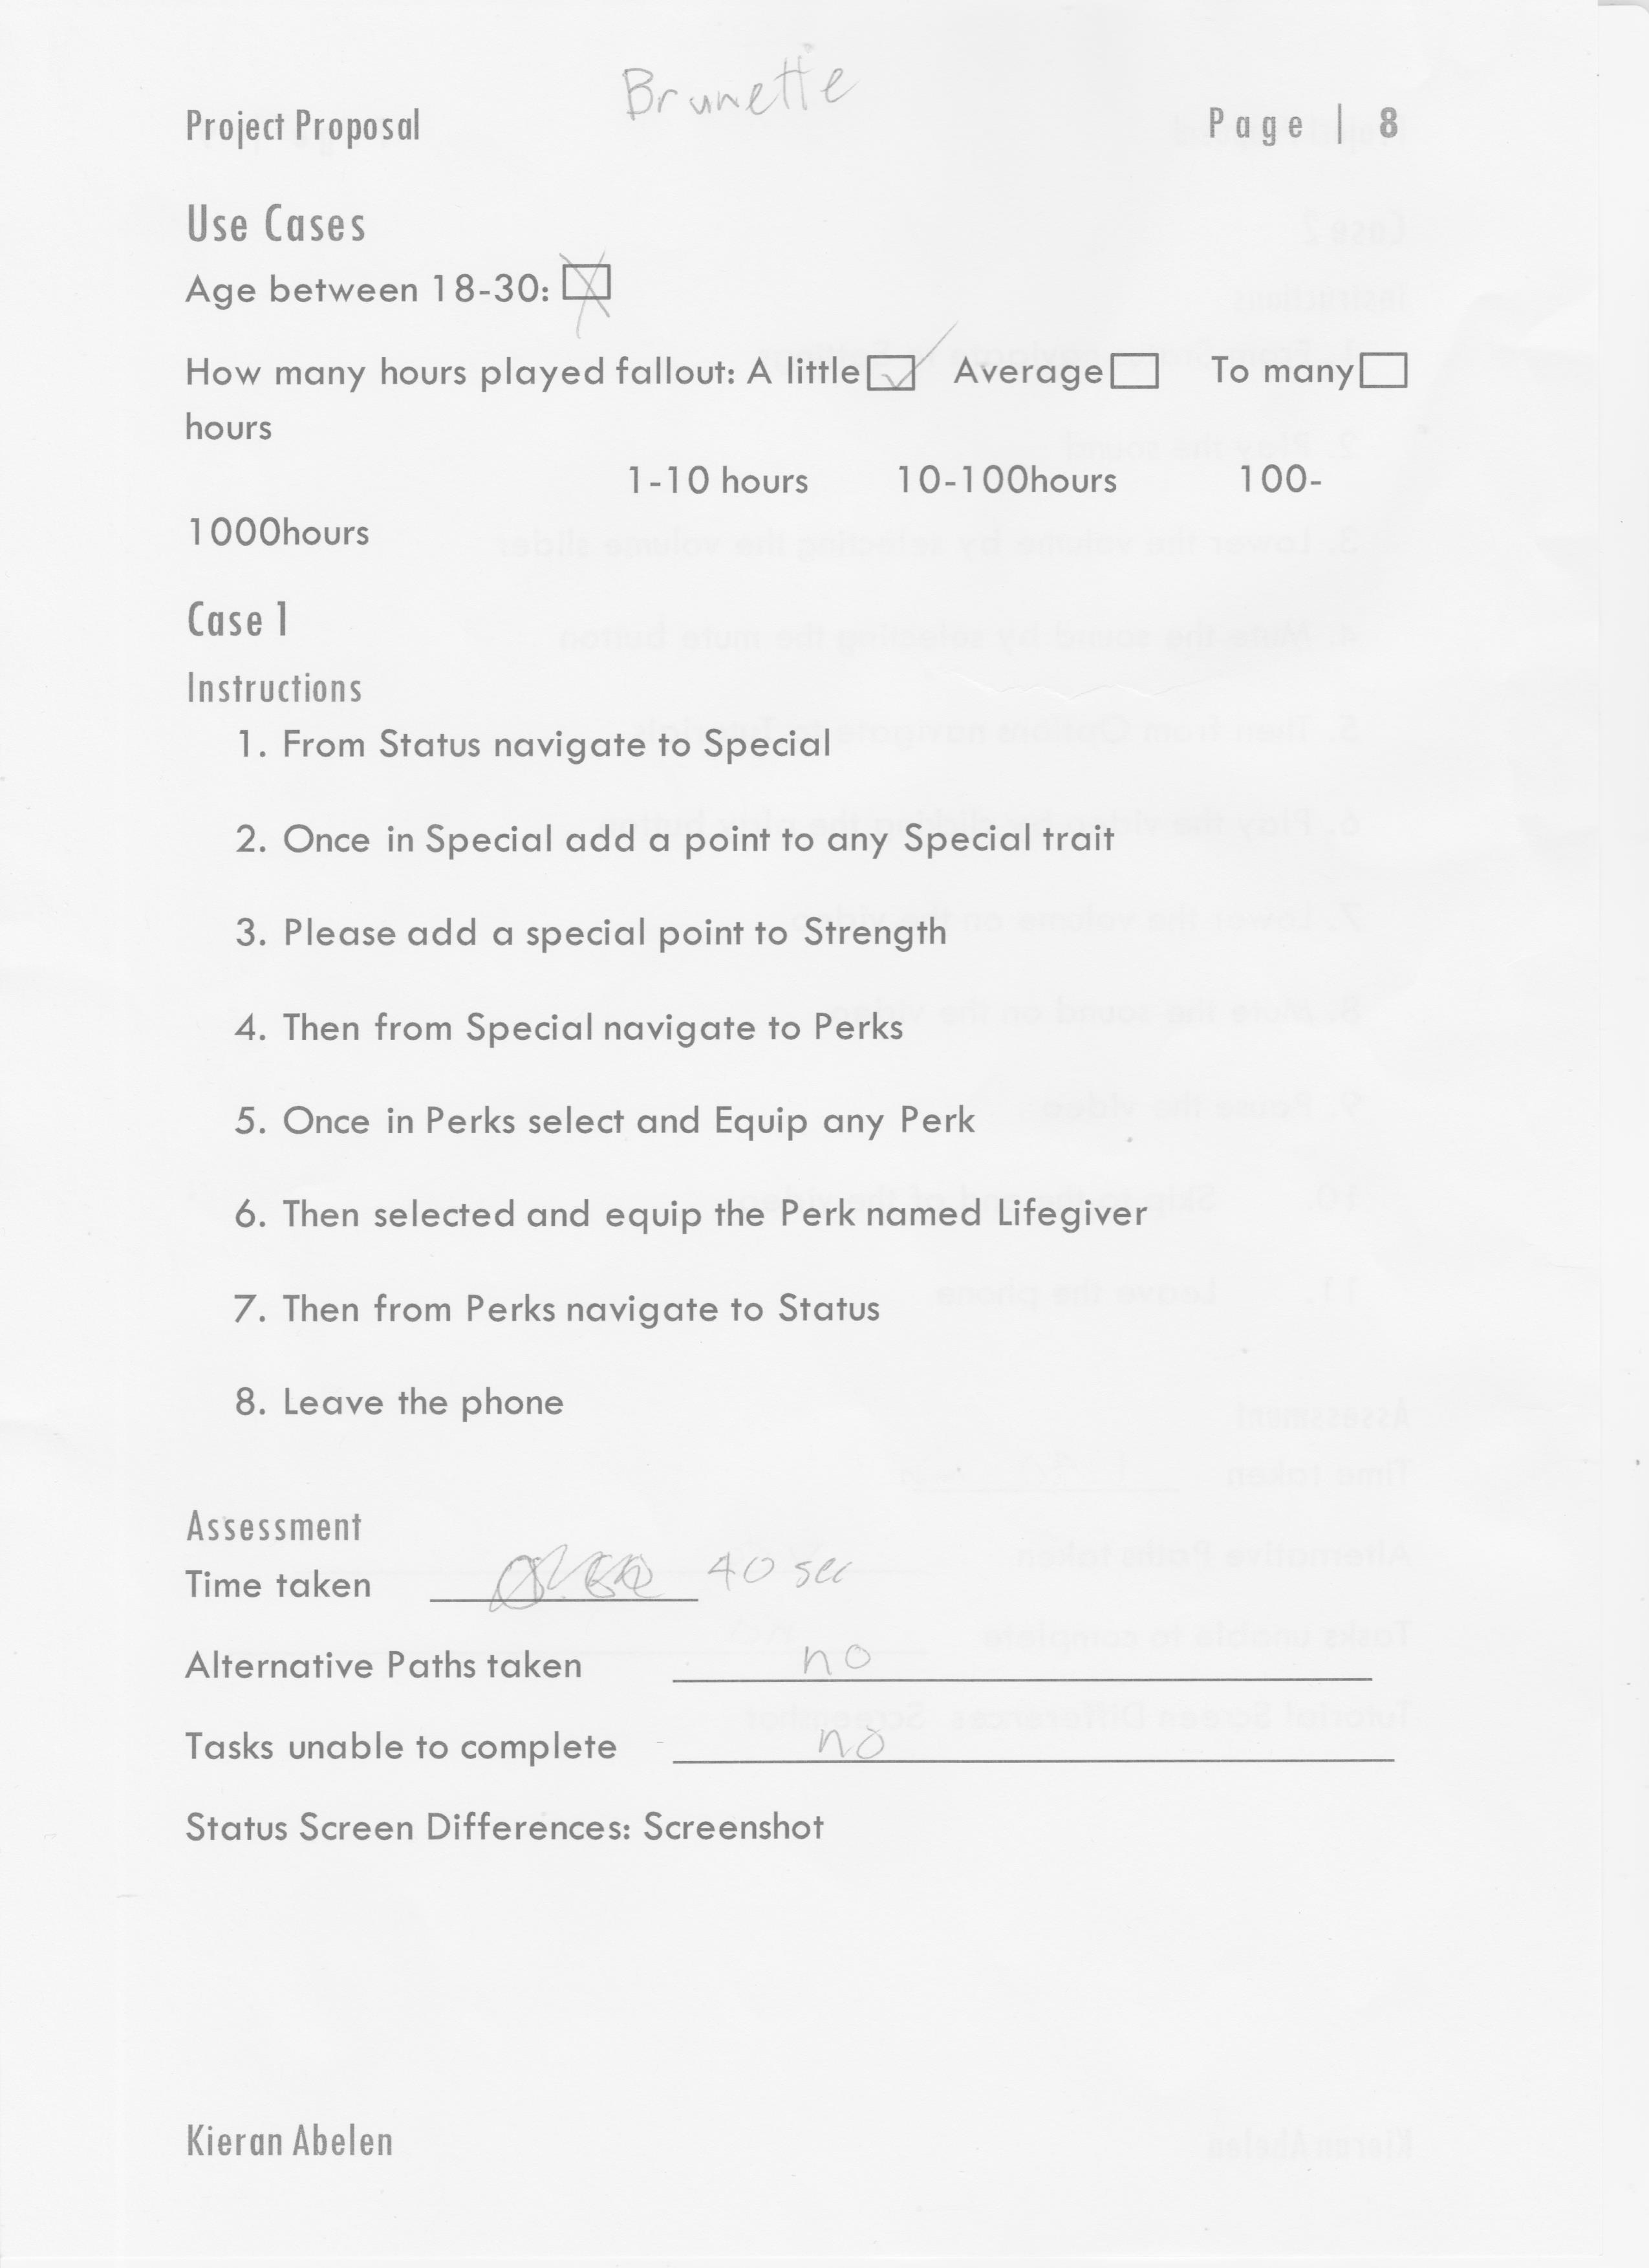 Brunette
Project Proposal Page | 8
Use Cases
Age between 18-30:
How many hours played fallout: A little Average To many
hours
1-10 hours 10-100hours 100-
1000hours
Case 1
Instructions
1. From Status navigate to Special
2. Once in Special add a point to any Special trait
3. Please add a special point to Strength
4. Then from Special navigate to Perks
5. Once in Perks select and Equip any Perk
6. Then selected and equip the Perk named Lifegiver
7. Then from Perks navigate to Status
8. Leave the phone
Assessment
Time taken 40 sec
Alternative Paths taken no
Tasks unable to complete no
Status Screen Differences: Screenshot
Kieran Abelen